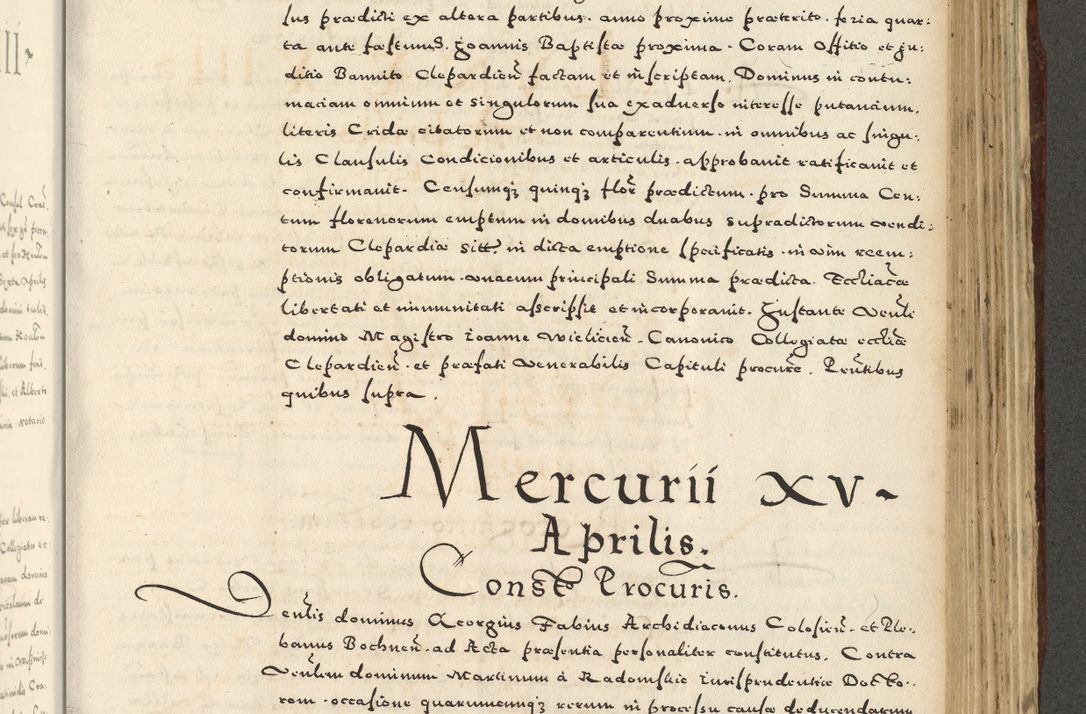 sus prædicti ex altera partibus. anno proximo præterito. feria quar:
ta ante fæstum S. Joannis Baptistæ proxima. Coram Offitio et Ju:
ditio Bannito Clepardieñ factam et inscriptam. Dominus in contu:
maciam omnium et singulorum sua exadverso interesse putancium.
literis Cridæ citatorum et non comparentium. in omnibus ac singu:
lis Clausulis Condicionibus et articulis. approbavit ratificavit et
confirmavit. Censumqȝ quinqȝ flor prædictum. pro Summa Cen:
tum florenorum emptum in domibus duabus supradictorum vendi:
torum Clepardiæ sitt. in dicta emptione specificatis. in vim reem:
ptionis obligatum. vnacum principali Summa prædicta. Eccliacæ
libertati et immunitati ascripsit et incorporavit. Instante Venli
domino Magistro Ioanne Wielicieñ. Canonico Collegiatæ eccliæ
Clepardieñ. et præfati Venerabilis Capituli procure. Pruntibus
quibus supra.
Mercurii XV
Aprilis.
Const Procuris.
Venlis dominus Georgius Fabius Archidiaconus Colosieñ. et Ple:
banus Bochneñ. ad Acta præsentia personaliter constitutus. Contra
Venlem dominum Martinum à Radomskie iurisprudentiæ Docto:
rem. occasione quarumcunqȝ rerum in processu causæ deducendarum
Consul Crac.
et Alberto
notario
Collegiatæ ec:
domino